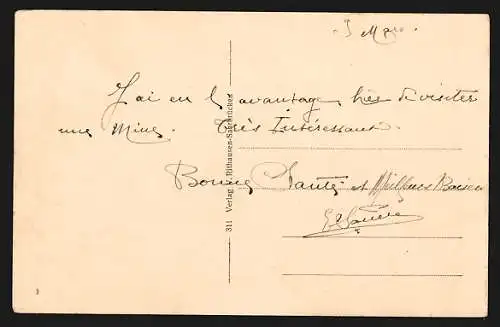 5 Mars
J'ai eu l'avantage hier de visiter
une Mine. Très Intéressant.
Bonne Santé et Meilleurs Baisers
311 Verlag Rithausen-Saarbrücken
3